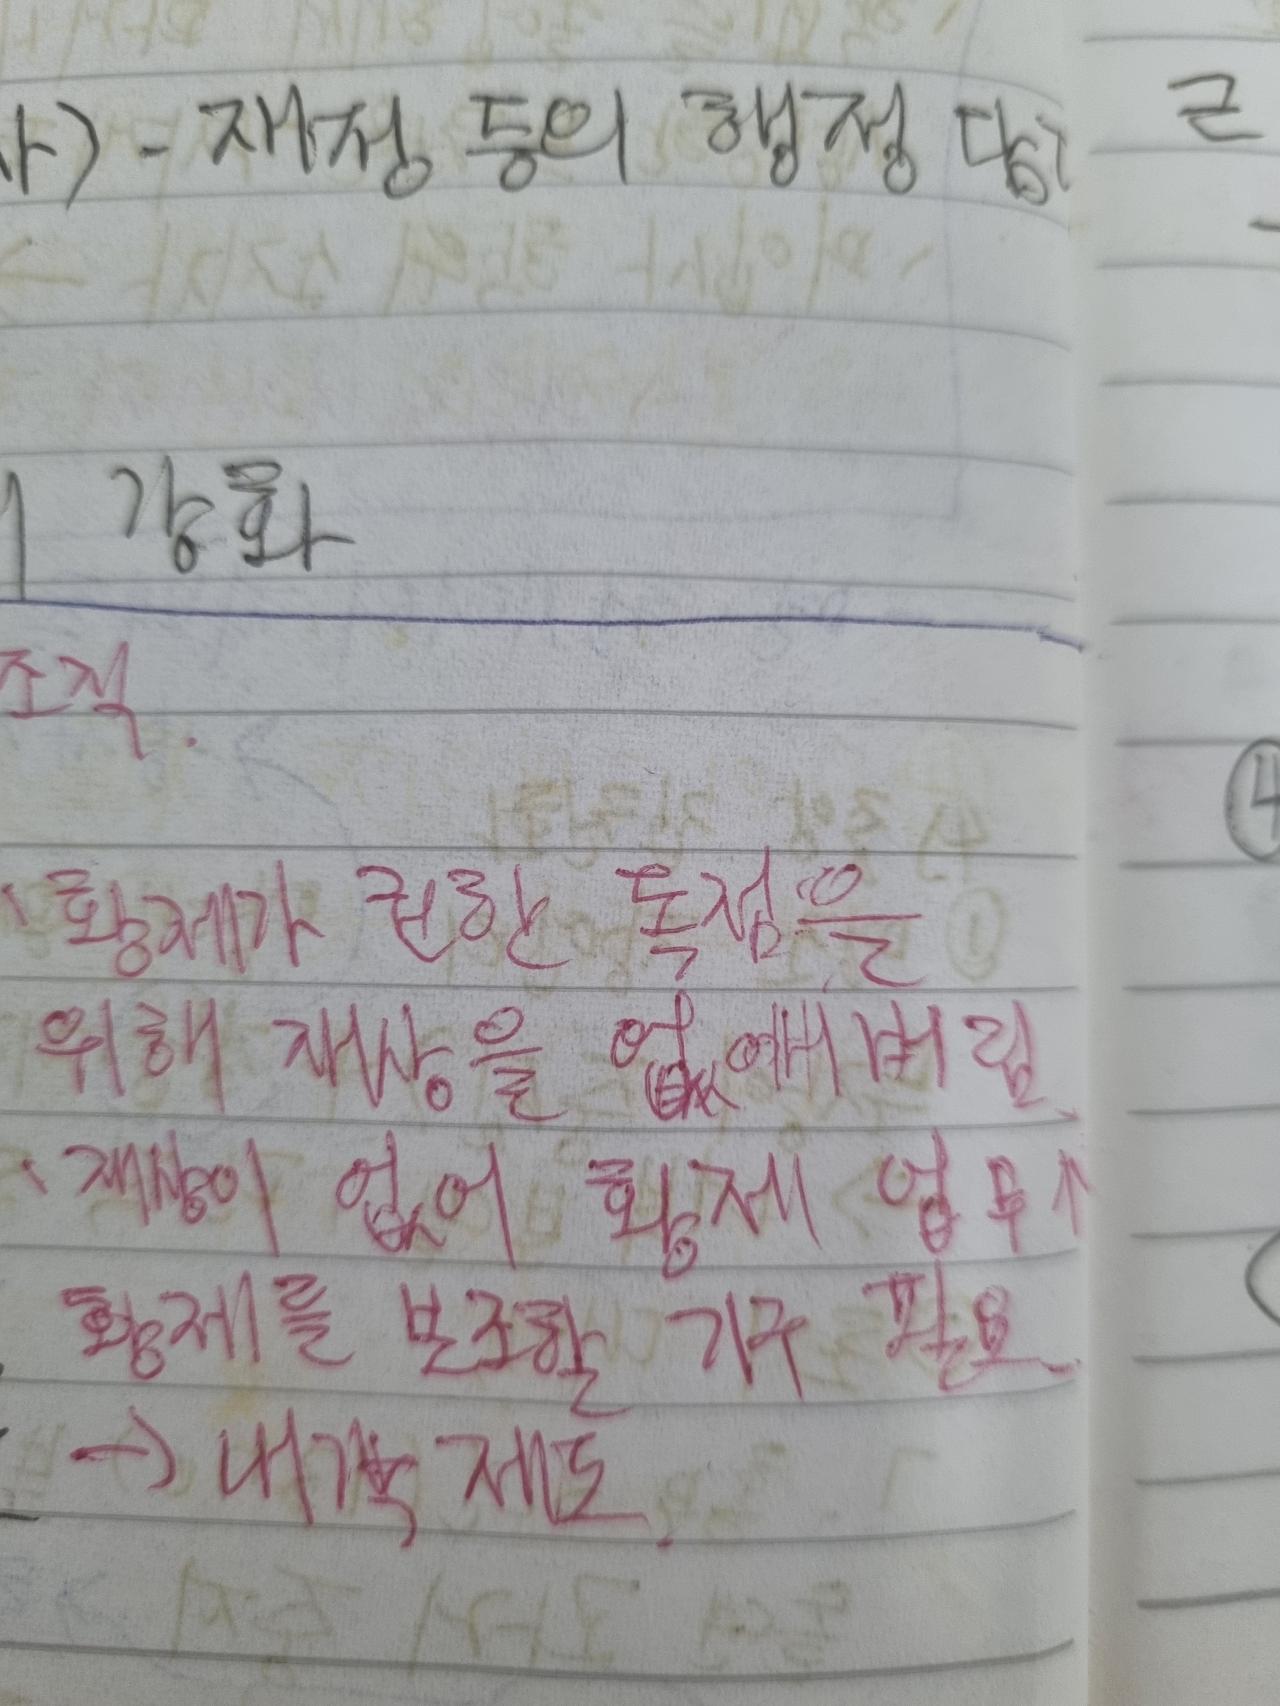 사) - 재정 등의 행정 담당
강화
조직.
황제가 권한 독점을
위해 재상을 없애버림.
재상이 없어 황제 업무↑
황제를 보조할 기구 필요.
→ 내각 제도.
근
④